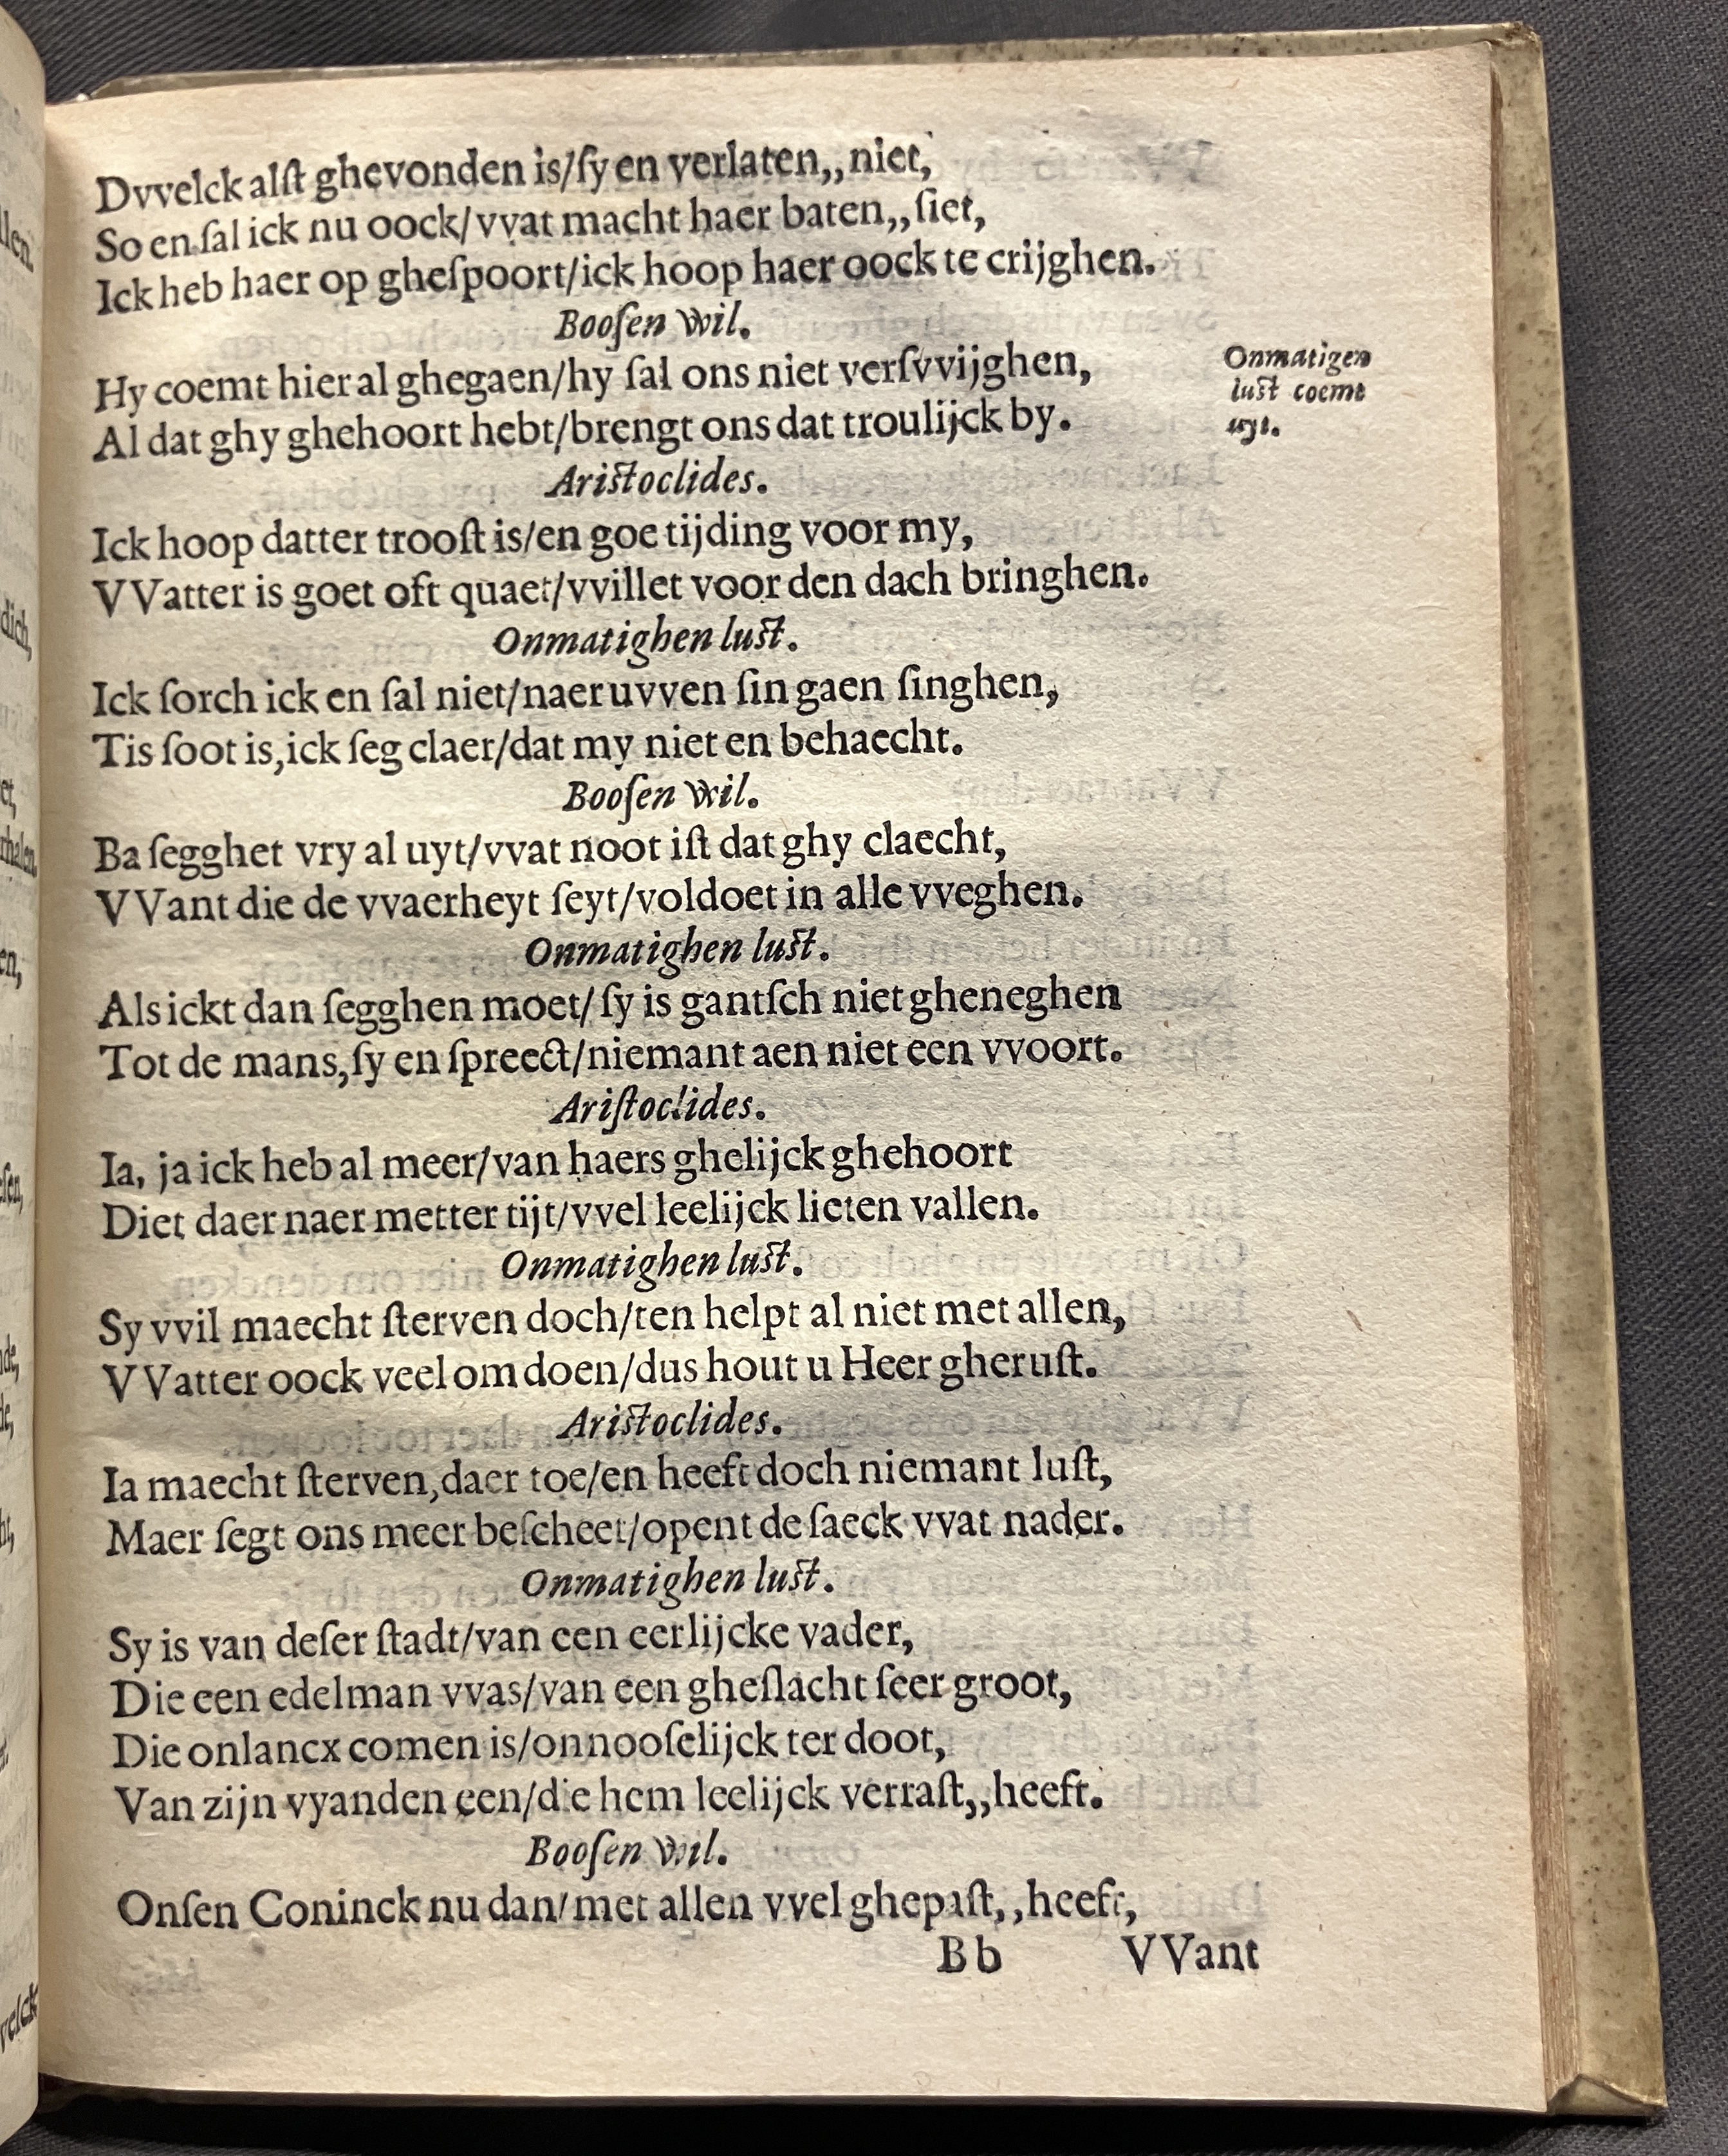 Dvvelck alſt ghevonden is/ſy en verlaten,,niet,
So en ſal ick nu oock/vvat macht haer baten,,ſiet,
Ick heb haer op gheſpoort/ick hoop haer oock te crijghen.
Booſen Wil.
Hy coemt hier al ghegaen/hy ſal ons niet verſvvijghen,
Onmatigen
lust coemt
uyt.
Al dat ghy ghehoort hebt/brengt ons dat troulijck by.
Aristoclides.
Ick hoop datter trooſt is/en goe tijding voor my,
VVatter is goet oft quaet/vvillet voor den dach bringhen.
Onmatighen lust.
Ick ſorch ick en ſal niet/naer uvven ſin gaen ſinghen,
Tis ſoot is,ick ſeg claer/dat my niet en behaecht.
Booſen Wil.
Ba ſegghet vry al uyt/vvat noot iſt dat ghy claecht,
VVant die de vvaerheyt ſeyt/voldoet in alle vveghen.
Onmatighen lust.
Als ickt dan ſegghen moet/ſy is gantſch niet gheneghen
Tot de mans,ſy en ſpreect/niemant aen niet een vvoort.
Ariſtoclides.
Ia, ja ick heb al meer/van haers ghelijck ghehoort
Diet daer naer metter tijt/vvel leelijck lieten vallen.
Onmatighen lust.
Sy vvil maecht ſterven doch/ten helpt al niet met allen,
VVatter oock veel om doen/dus hout u Heer gheruſt.
Aristoclides.
Ia maecht ſterven,daer toe/en heeft doch niemant luſt,
Maer ſegt ons meer beſcheet/opent de ſaeck vvat nader.
Onmatighen lust.
Sy is van deſer ſtadt/van een eerlijcke vader,
Die een edelman vvas/van een gheſlacht ſeer groot,
Die onlancx comen is/onnooſelijck ter doot,
Van zijn vyanden een/die hem leelijck verraſt,,heeft.
Booſen Wil.
Onſen Coninck nu dan/met allen vvel ghepaſt,,heeft,
Bb VVant